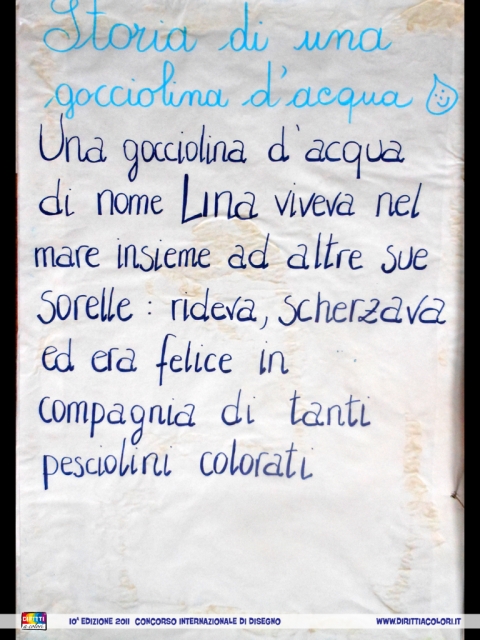 Storia di una
gocciolina d'acqua
Una gocciolina d'acqua
di nome Lina viveva nel
mare insieme ad altre sue
sorelle : rideva, scherzava
ed era felice in
compagnia di tanti
pesciolini colorati
DIRITTI a colori 10ª EDIZIONE 2011 CONCORSO INTERNAZIONALE DI DISEGNO WWW.DIRITTIACOLORI.IT